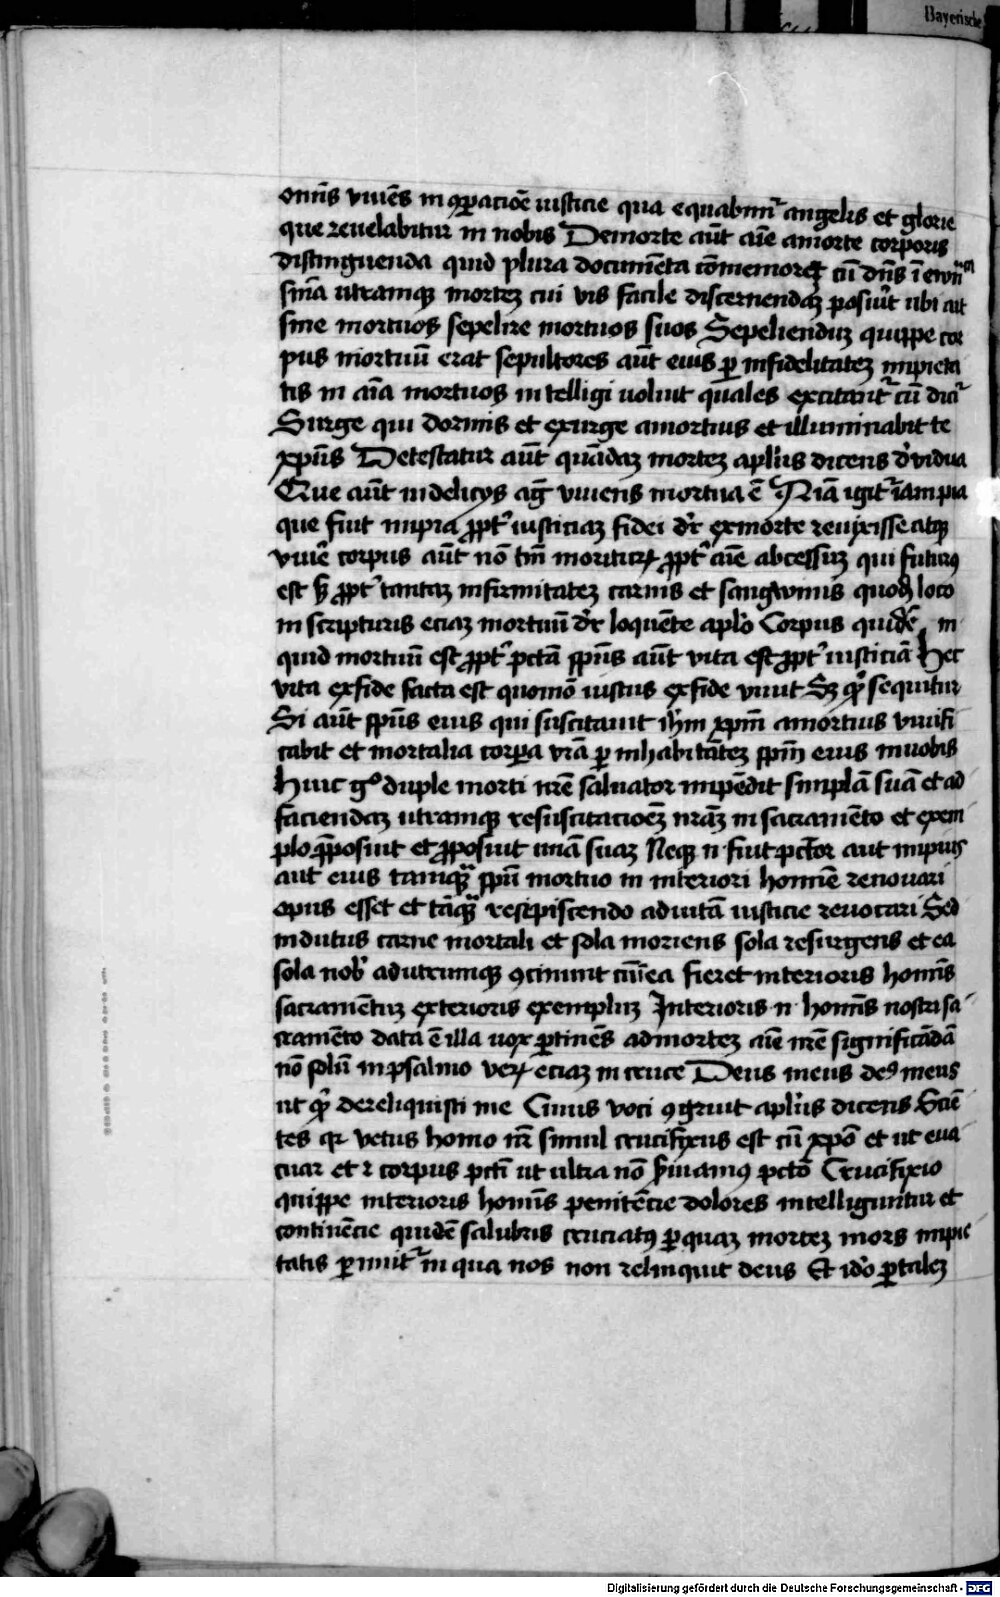 Bayerische
om̄s viuēs in ꝯꝑacōe iusticie qua equabim᷑ angelis et glorie
que reuelabitur in nobis Demorte aūt aīe amorte corporis
distinguenda quid plura documēta cōmemorem cū dn̄s ī ewn̄
sn̄īa utramqꝫ morteꝫ cui vis facile discernendaꝫ posiūt ubi ait
sine mortuos sepelire mortuos suos Sepeliendūꝫ quippe cor
pus mortuū erat sepultores aūt eius ꝑ infidelitateꝫ impieta
tis in aīa mortuos intelligi uoluit quales excitant᷑ cū dicit᷑
Surge qui dormis et exurge amortuis et illuminabit te
xp̄us Detestatur aūt quādaꝫ morteꝫ apl̄us dicens d̓ vidua
Que aūt in delicijs agit viuens mortua ē Aīa igit᷑ iam pia
que fuit impia ꝓpt᷑ iusticiaꝫ fidei dr̄ ex morte reuixisse atqꝫ
viuē corpus aūt nō tm̄ morituꝝ ꝓpt᷑ aīe abcessuꝫ qui futurꝰ
est sꝫ ꝓpt᷑ tantaꝫ infirmitateꝫ carnis et sangwinis quodā loco
in scripturis eciaꝫ mortuū dr̄ loquēte apl̄o Corpus quidē in
quid mortuū est ꝓpt᷑ pctm̄ sp̄us aūt vita est ꝓpt᷑ iusticiā Hec
vita ex fide facta est quoniā iustus ex fide viuit Sꝫ qd̓ sequitur
Si aūt sp̄us eius qui suscitauit ihm̄ xpm̄ amortuis viuifi
cabit et mortalia corꝑa vrā ꝑ inhabitāteꝫ sp̄m eius in uobis
Huic gͦ duple morti nr̄e saluator impēdit simplā suā et ad
faciendaꝫ utramqꝫ resuscitacioēꝫ nrāꝫ in sacramēto et exem
plo p̄posuit et ꝓposuit unā suaꝫ Neqꝫ n̄ fuit pctōr aut impius
aut eius tamqᷓ sp̄u mortuo in interiori homīe renouari
opus esset et tāqᷓ resipiscendo ad uitā iusticie reuocari Sed
indutus carne mortali et sola moriens sola resurgens et ea
sola nob̄ ad utrumqꝫ ꝯcinuit cū in ea fieret interioris homīs
sacramētuꝫ exterioris exempluꝫ Interioris n̄ homīs nostri sa
cramēto data ē illa uox ꝑtinēs ad morteꝫ aīe nr̄e significādā
nō solū in psalmo veꝝ eciaꝫ in cruce Deus meus deꝰ meus
ut qd̓ dereliquisti me Cuius voci ꝯgruit apl̄us dicens Sciē
tes qꝛ vetus homo nr̄ simul crucifixus est cū xpō et ut eua
cuar et ꝛ corpus pcti ut ultra nō s̓uiamꝰ pctō Crucifixio
quippe interioris homīs penitēcie dolores intelliguntur et
continēcie quidē salubris cruciatꝰ ꝑ quaꝫ morteꝫ mors impie
tatis ꝑimit᷑ in qua nos non relinquit deus Et id̓o ꝑ taleꝫ
Digitalisierung gefördert durch die Deutsche Forschungsgemeinschaft - DFG